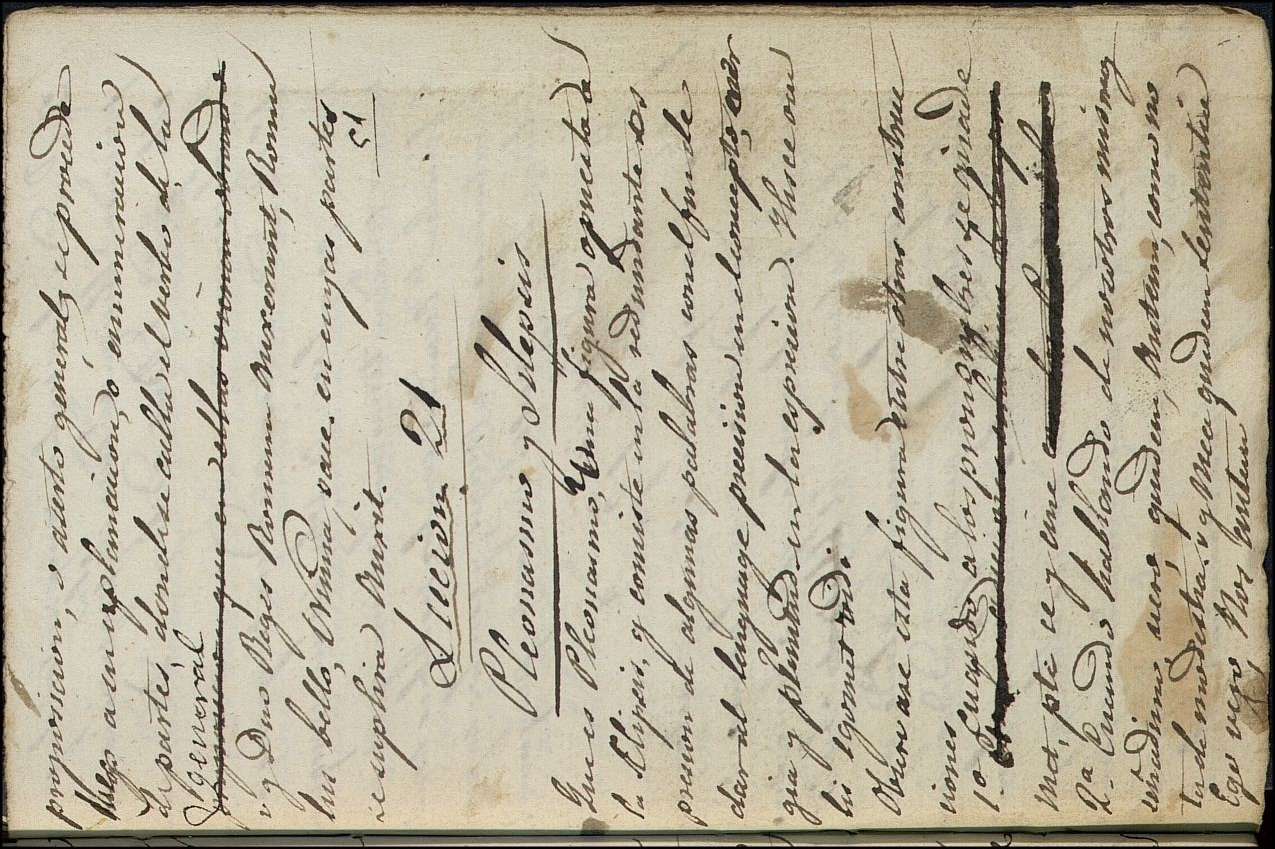 proposicion, o aserto general, se procede
luego a una esplanacion, o enumeracion
de partes, donde se calla el verbo de la
general
v g Duo Reges Romam auxerunt, Romu
lus bello, Numa pace. en cuyas partes
se suplira auxit.
51
Leccion 21
Pleonasmo y Silepsis
Que es Pleonasmo, Una figura opuesta a
la Elipsis, y consiste en la redundante es
presion de algunas palabras con el fin de
dar al lenguage precision en el concepto, ener
gia y plenitud en la espresion. Hisce ocu
lis egomet vidi
Observase esta figura entre otras construc
ciones
1º Cuando a los pronombres se añade
met, pte ce y cine
2ª Cuando hablando de nosotros mismos
añadimos vero, quidem, autem, como no
ta de modestia. v g Mea quidem sententia
Ego vero Nos autem